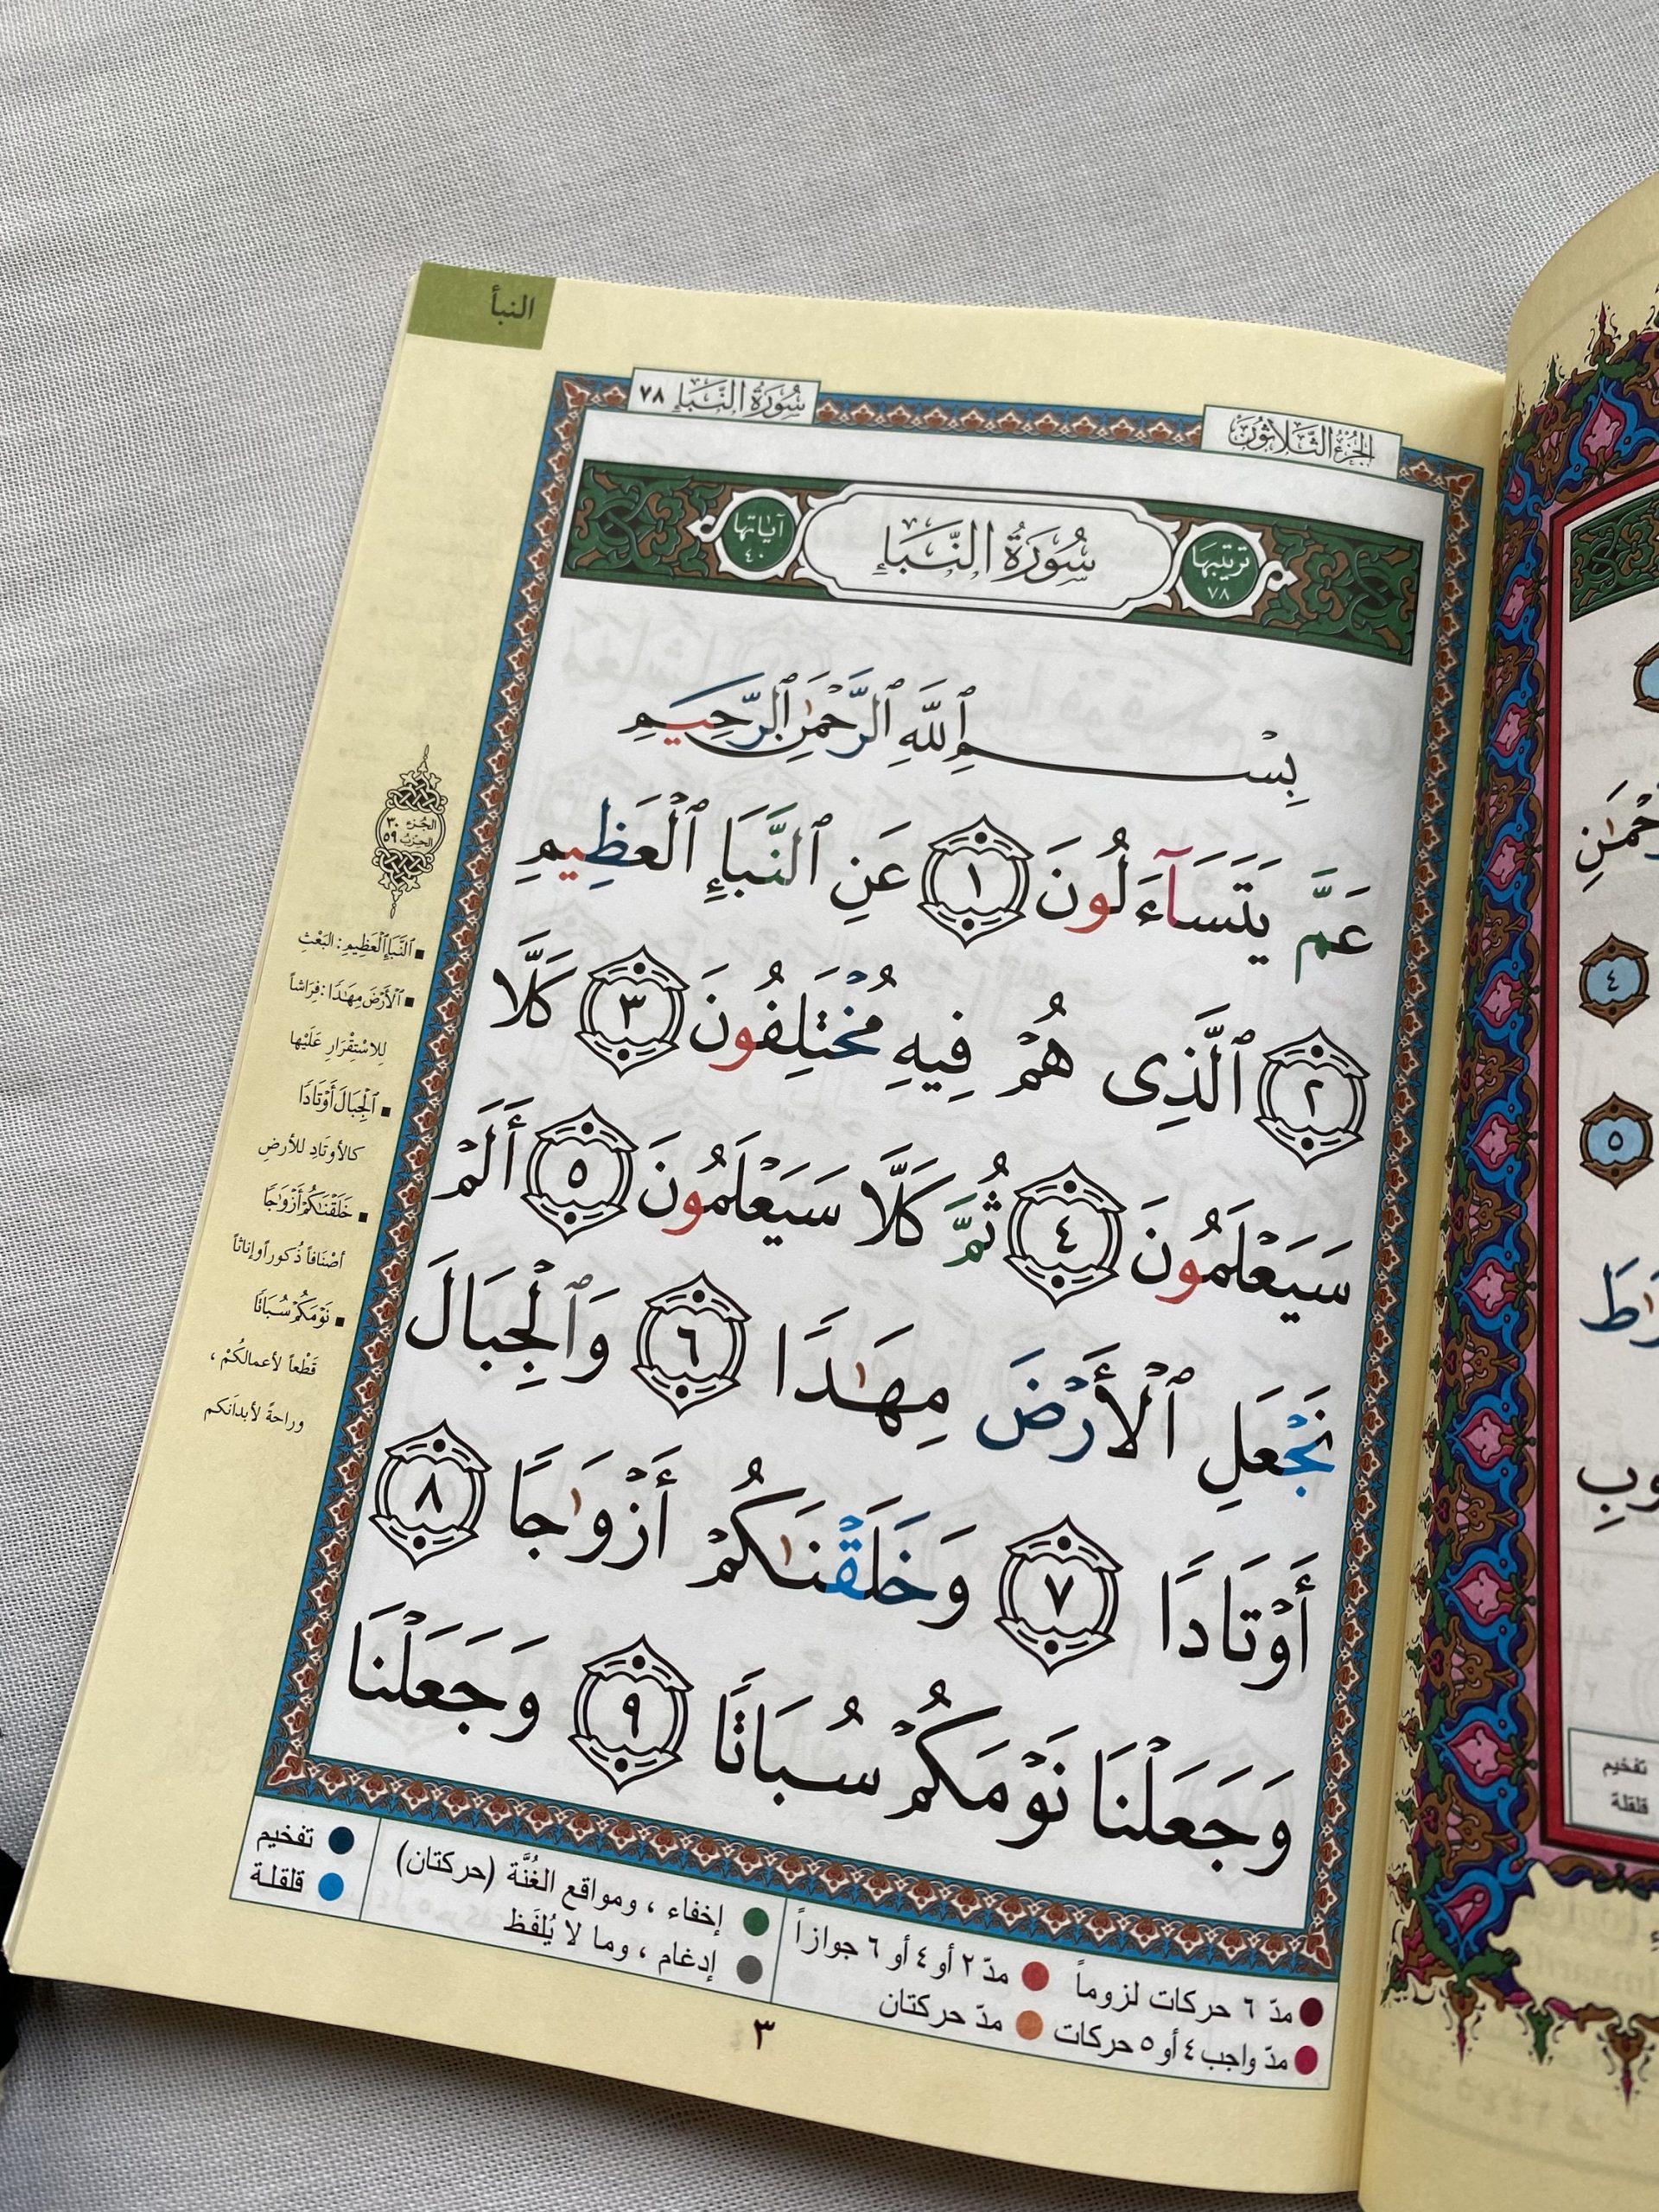 النبأ
الجزء الثلاثون
سُورَةُ النَّبَإِ ٧٨
ترتيبها ٧٨
سُورَةُ النَّبَإِ
آياتها ٤٠
بِسْمِ ٱللَّهِ ٱلرَّحْمَٰنِ ٱلرَّحِيمِ
عَمَّ يَتَسَآءَلُونَ ١ عَنِ ٱلنَّبَإِ ٱلْعَظِيمِ
٢ ٱلَّذِى هُمْ فِيهِ مُخْتَلِفُونَ ٣ كَلَّا
سَيَعْلَمُونَ ٤ ثُمَّ كَلَّا سَيَعْلَمُونَ ٥ أَلَمْ
نَجْعَلِ ٱلْأَرْضَ مِهَٰدًا ٦ وَٱلْجِبَالَ
أَوْتَادًا ٧ وَخَلَقْنَٰكُمْ أَزْوَٰجًا ٨
وَجَعَلْنَا نَوْمَكُمْ سُبَاتًا ٩ وَجَعَلْنَا
الجزء ٣٠
الحزب ٥٩
■ ٱلنَّبَإِ ٱلْعَظِيمِ: البَعْثِ
■ ٱلْأَرْضَ مِهَٰدًا: فِرَاشاً
لِلاسْتِقْرَارِ عَلَيْها
■ ٱلْجِبَالَ أَوْتَادًا
كالأوتَادِ للأرضِ
■ خَلَقْنَٰكُمْ أَزْوَٰجًا
أصْنَافاً ذُكوراً وإناثاً
■ نَوْمَكُمْ سُبَاتًا
قَطْعاً لأعمالكُمْ،
وراحةً لأبدانكم
مدّ ٦ حركات لزوماً مدّ ٢ أو ٤ أو ٦ جوازاً
مدّ واجب ٤ أو ٥ حركات مدّ حركتان
إخفاء، ومواقع الغُنَّة (حركتان)
إدغام، وما لا يُلفَظ
تفخيم
قلقلة
٣
٤
٥
تفخيم
قلقلة